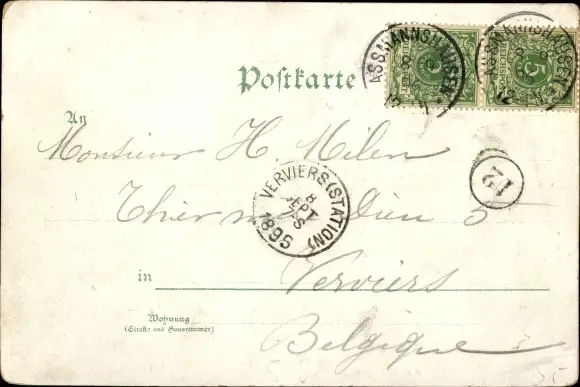 ASSMANNSHAUSEN
ASSMANNSHAUSEN
5
Postkarte
An
Monsieur H. Milen
VERVIERS (STATION)
8 SEPT
7-S
1896
12
Thier mer Dieu 5
in Verviers
Wohnung
(Straße und Hausnummer)
Belgique